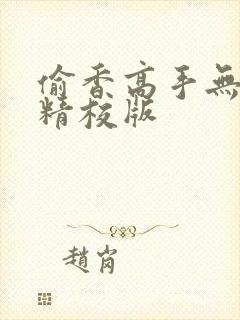 偷香高手無
精校版
趙肖